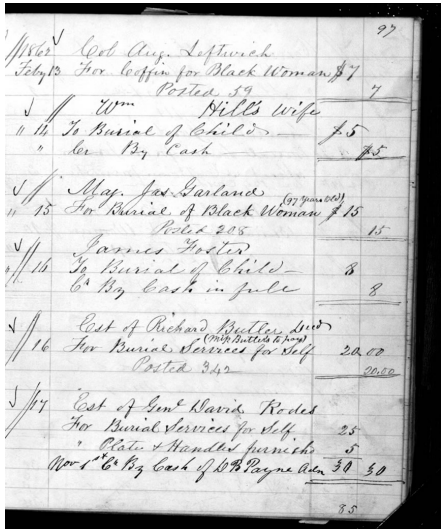 97
1862 Col Aug. Leftwich
Feby 13 For Coffin for Black Woman $7
Posted 59 7
" Wm Hill's Wife
" 14 To Burial of Child – $5
" Cr By Cash $5
Maj. Jas Garland
(97 Years Old)
" 15 For Burial of Black Woman $15
Posted 208 15
James Foster
" 16 To Burial of Child – 8
Cr By Cash in full 8
Est of Richard Butler Decd
(Miss Butler to pay)
" 16 For Burial Services for Self 20.00
Posted 342 20.00
17 Est of Genl David Rodes
For Burial Services for Self 25
" Plate & Handles furnishd 5
Nov 1st Cr By Cash of D B Payne Adm 30 30
85